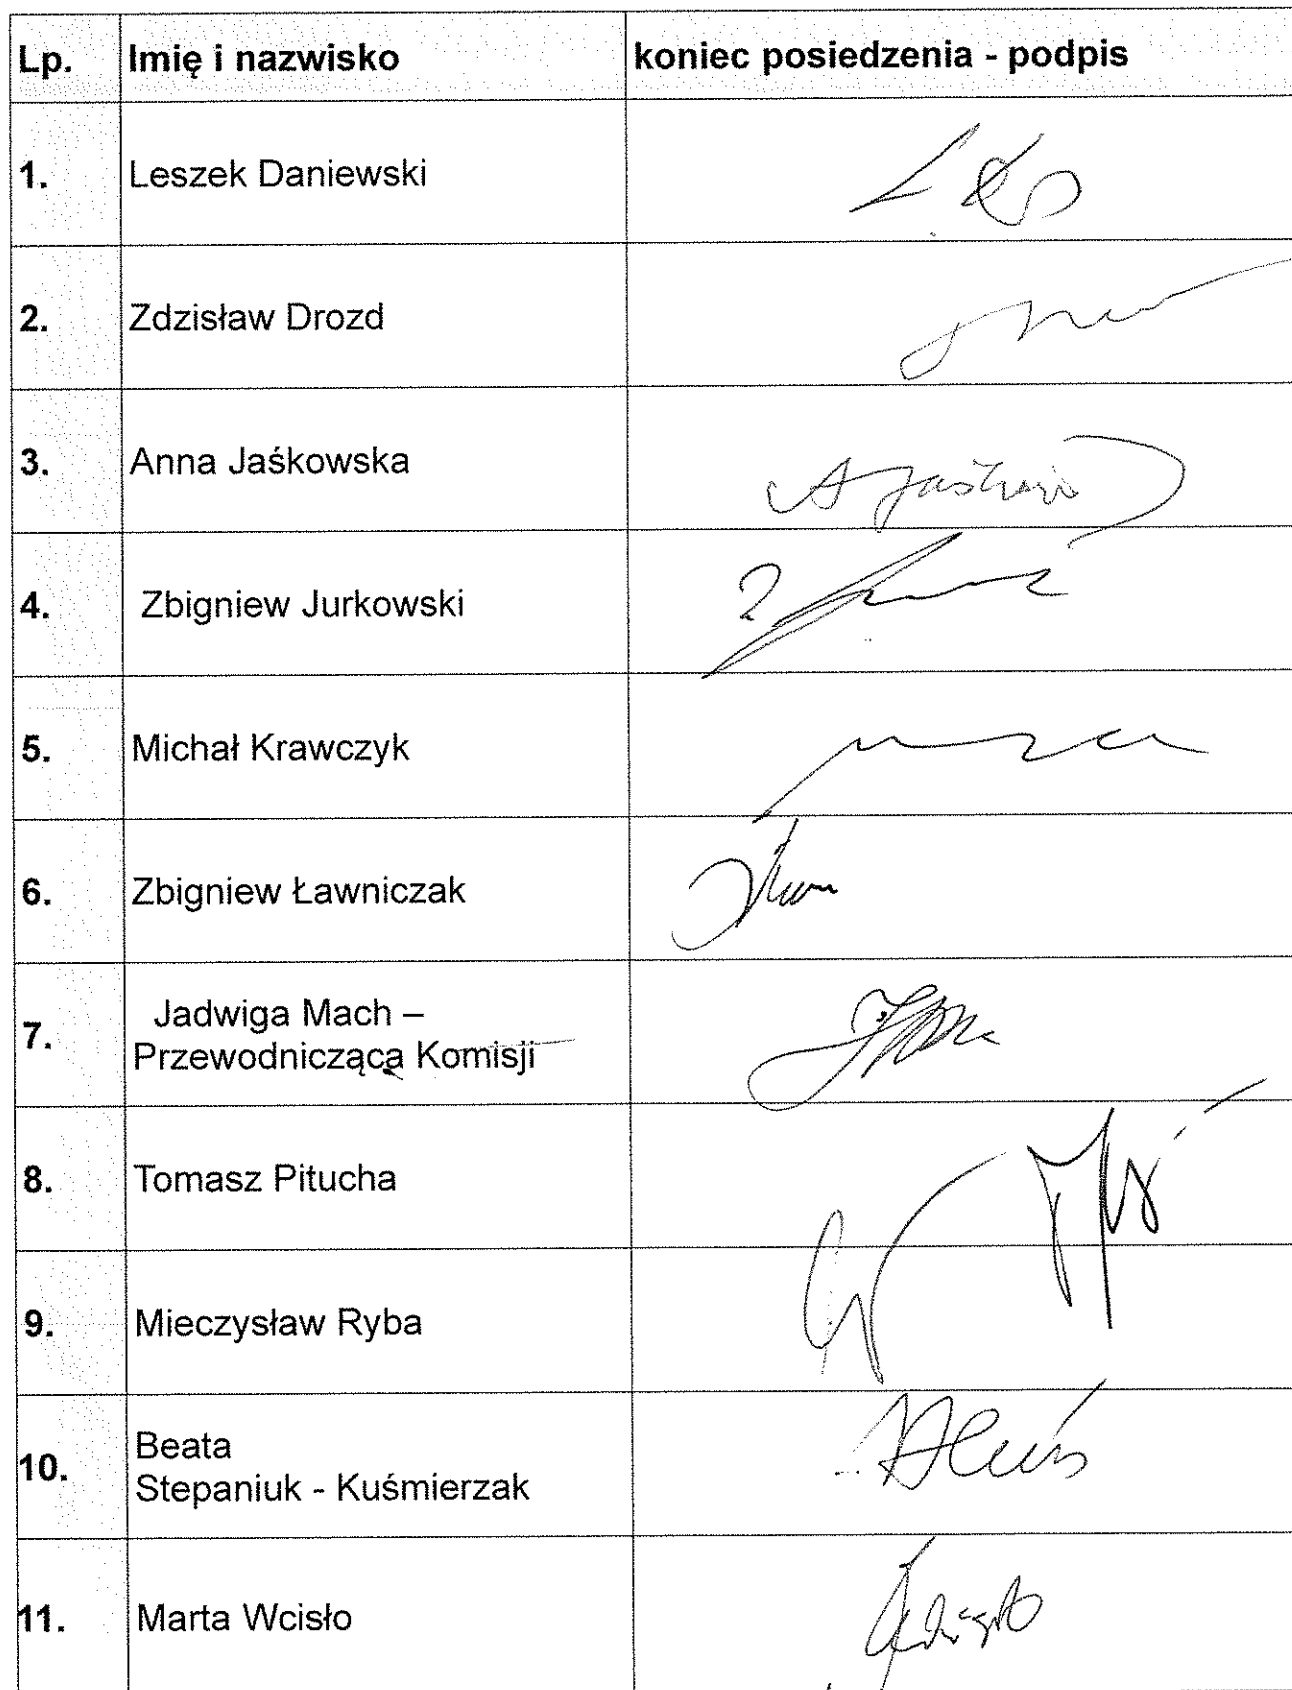 Lp. Imię i nazwisko koniec posiedzenia - podpis
1. Leszek Daniewski
2. Zdzisław Drozd
3. Anna Jaśkowska
4. Zbigniew Jurkowski
5. Michał Krawczyk
6. Zbigniew Ławniczak
7. Jadwiga Mach –
Przewodnicząca Komisji
8. Tomasz Pitucha
9. Mieczysław Ryba
10. Beata
Stepaniuk - Kuśmierzak
11. Marta Wcisło